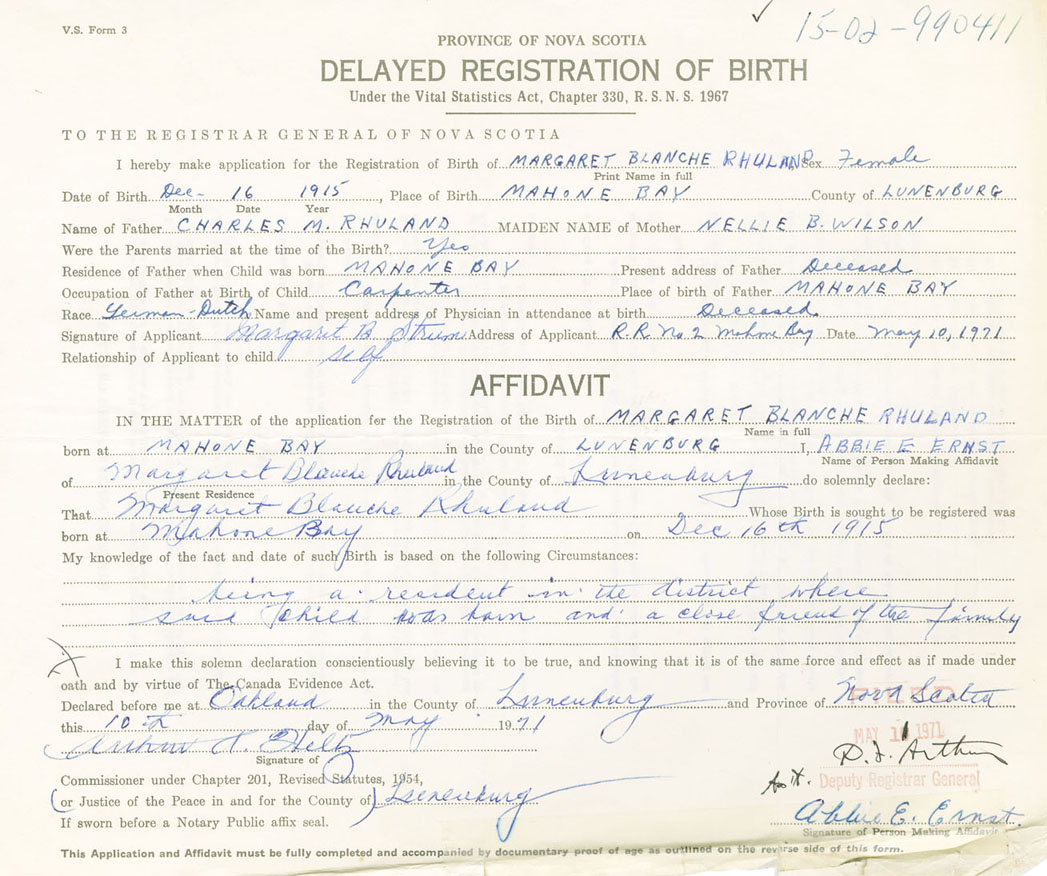 V.S. Form 3
15-02-990411
PROVINCE OF NOVA SCOTIA
DELAYED REGISTRATION OF BIRTH
Under the Vital Statistics Act, Chapter 330, R. S. N. S. 1967
TO THE REGISTRAR GENERAL OF NOVA SCOTIA
I hereby make application for the Registration of Birth of MARGARET BLANCHE RHULAND Sex Female
Print Name in full
Date of Birth Dec- 16 1915, Place of Birth MAHONE BAY County of LUNENBURG
Month Date Year
Name of Father CHARLES M. RHULAND MAIDEN NAME of Mother NELLIE B. WILSON
Were the Parents married at the time of the Birth? Yes
Residence of Father when Child was born MAHONE BAY Present address of Father Deceased
Occupation of Father at Birth of Child Carpenter Place of birth of Father MAHONE BAY
Race German-Dutch Name and present address of Physician in attendance at birth Deceased
Signature of Applicant Margaret B. Strum Address of Applicant R.R. No 2 Mahone Bay Date May 10, 1971
Relationship of Applicant to child self
AFFIDAVIT
IN THE MATTER of the application for the Registration of the Birth of MARGARET BLANCHE RHULAND
Name in full
born at MAHONE BAY in the County of LUNENBURG I, ABBIE E ERNST
Name of Person Making Affidavit
of Margaret Blanche Rhuland in the County of Lunenburg do solemnly declare:
Present Residence
That Margaret Blanche Rhuland Whose Birth is sought to be registered was
born at Mahone Bay on Dec 16th 1915
My knowledge of the fact and date of such Birth is based on the following Circumstances:
being a resident in the district where
said child was born and a close friend of the family
I make this solemn declaration conscientiously believing it to be true, and knowing that it is of the same force and effect as if made under
oath and by virtue of The Canada Evidence Act.
Declared before me at Oakland in the County of Lunenburg and Province of Nova Scotia
this 10th day of May 1971
MAY 1 1971
Signature of
D. J. Arthur
Commissioner under Chapter 201, Revised Statutes, 1954,
Asst. Deputy Registrar General
(or Justice of the Peace in and for the County of) Lunenburg
Abbie E. Ernst.
If sworn before a Notary Public affix seal.
Signature of Person Making Affidavit
This Application and Affidavit must be fully completed and accompanied by documentary proof of age as outlined on the reverse side of this form.